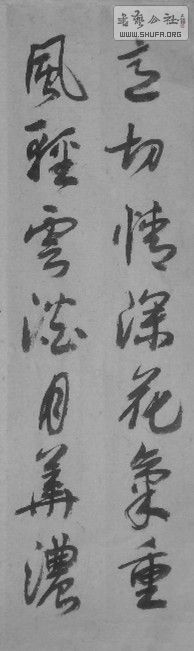 意切情深花氣重
風輕雲淡月華濃
書藝公社
WWW.SHUFA.ORG